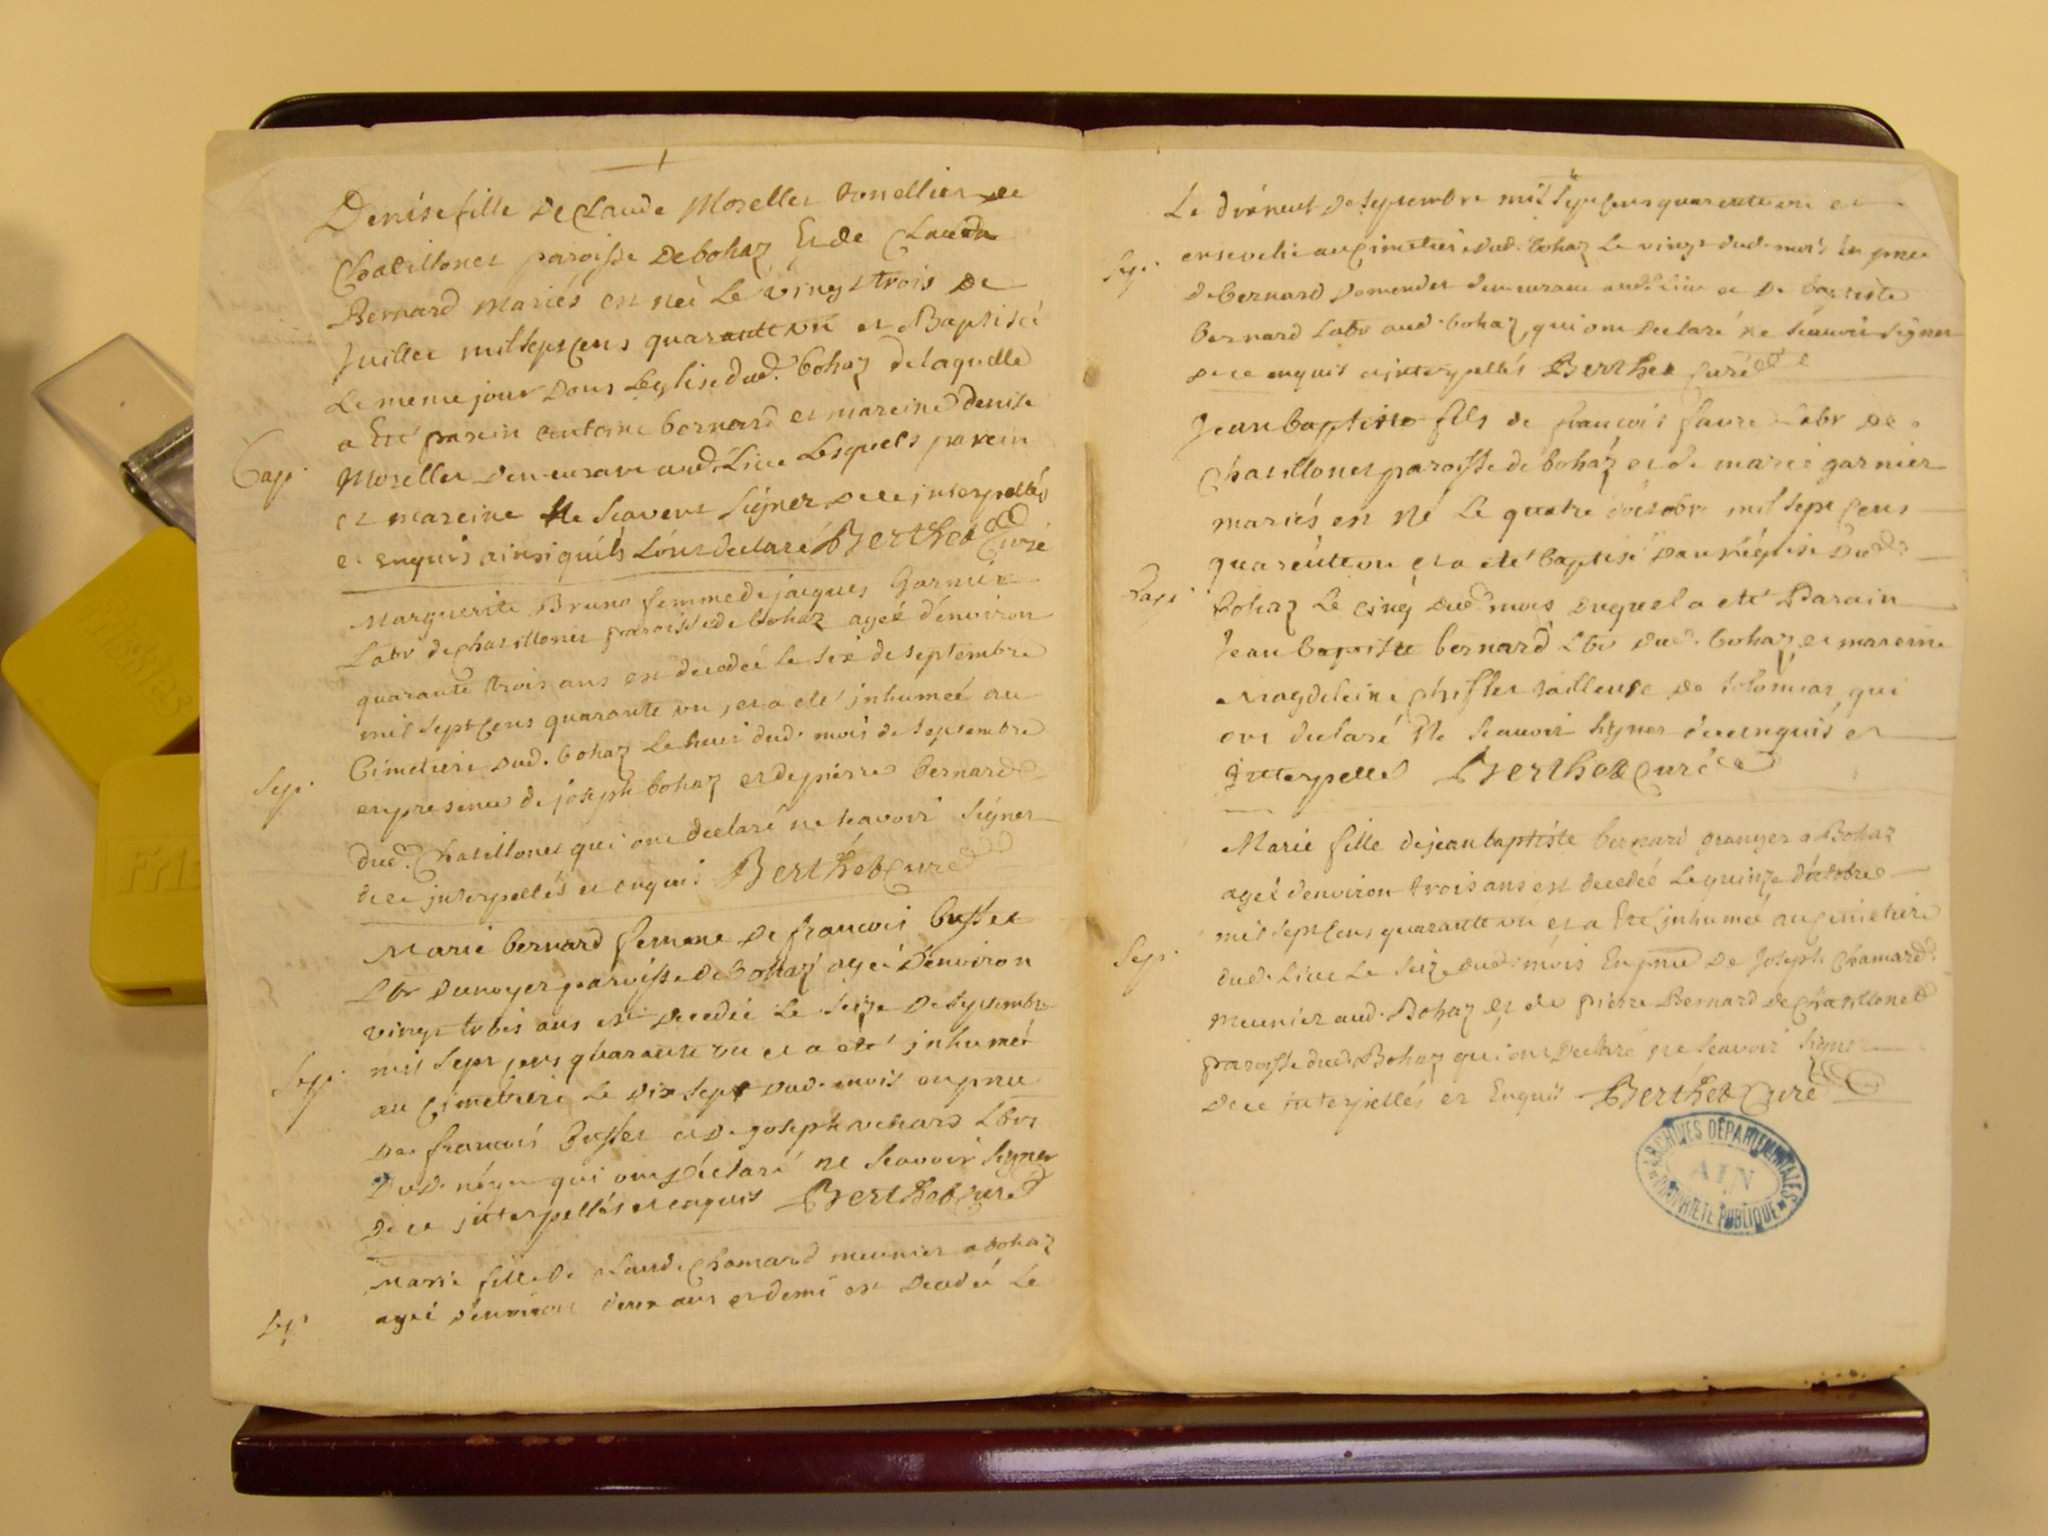 Denise fille de Claude Morellet tonellier de
Chatillonet paroisse de bohaz Et de Clauda
Bernard mariés est née Le vingt trois de
Juillet mil sept Cens quarante un et Baptisée
Le meme jour dans Leglise dud. bohaz de laquelle
a Eté parein antoine bernard et mareine denise
Bapt.
Morellet demeurant aud. Lieu Lesquels parein
et mareine Ne scavent signer de ce interpellés
et enquis ainsi quils Lont declaré Berthet Curé
Marguerite Bruno femme de jacques Garnier
Labr de chatillonet paroisse de bohaz agée denviron
quarante trois ans est decedée le six de septembre
mil sept Cens quarante un, et a eté inhumeé au
Cimetiere dud. bohaz Le huit dud. mois de septembre
Sep.
en presence de joseph bohaz et de pierre bernard
dud. Chatillonet qui ont declaré ne scavoir signer
de ce interpellés et enquis Berthet Curé
Marie bernard femme de francois bussset
Lbr de noyer paroisse de bohaz ageé denviron
vingt trois ans est decedée Le seize de septembre
mil sept cens quarante un et a eté inhumeé
Sep.
au Cimetiere Le dix sept dud. mois en pnce
de francois busset et de joseph Lbrs
dud. qui ont déclaré ne scavoir signer
de ce interpellés et enquis Berthet Curé
Marie fille de Claude Chamard meunier a bohaz
ageé denviron deux ans et demi est decedeé Le
Sep.
Le dixneuf de septembre mil sept Cens quarante un et
ensevelie au Cimetiere dud. bohaz Le vingt dud. mois En pnce
Sep.
de bernard demeurant aud. Lieu et de baptiste
bernard Labr aud. bohaz, qui ont declaré ne scavoir signer
de ce enquis et interpellés Berthet Curé
Jean baptiste fils de francois favre Labr de
Chatillonet paroisse de bohaz et de marie garnier
mariés est Né Le quatre doctobre mil sept Cens
quarente un et a eté baptisé dans l'église dud.
Bapt.
bohaz Le cinq dud. mois duquel a eté Parain
Jean baptiste bernard Lbr dud. bohaz et mareine
Magdeleine tailleuse de qui
ont declaré Ne scauoir signer de ce enquis et
Interpellés Berthet Curé
Marie fille de jean baptiste bernard granger a Bohaz
ageé denviron trois ans est decedeé Le quinze doctobre
mil sept Cens quarante un et a Eté inhumeé au Cimetiere
Sep.
dud. Lieu Le Seize dud. mois En pnce De Joseph Chamard
Meunier aud. Bohaz et de pierre Bernard de Chatillonet
paroisse dud. Bohaz qui ont Declaré ne scavoir signer
de ce interpellés et Enquis Berthet Curé
ARCHIVES DÉPARTEMENTALES
AIN
PROPRIÉTÉ PUBLIQUE